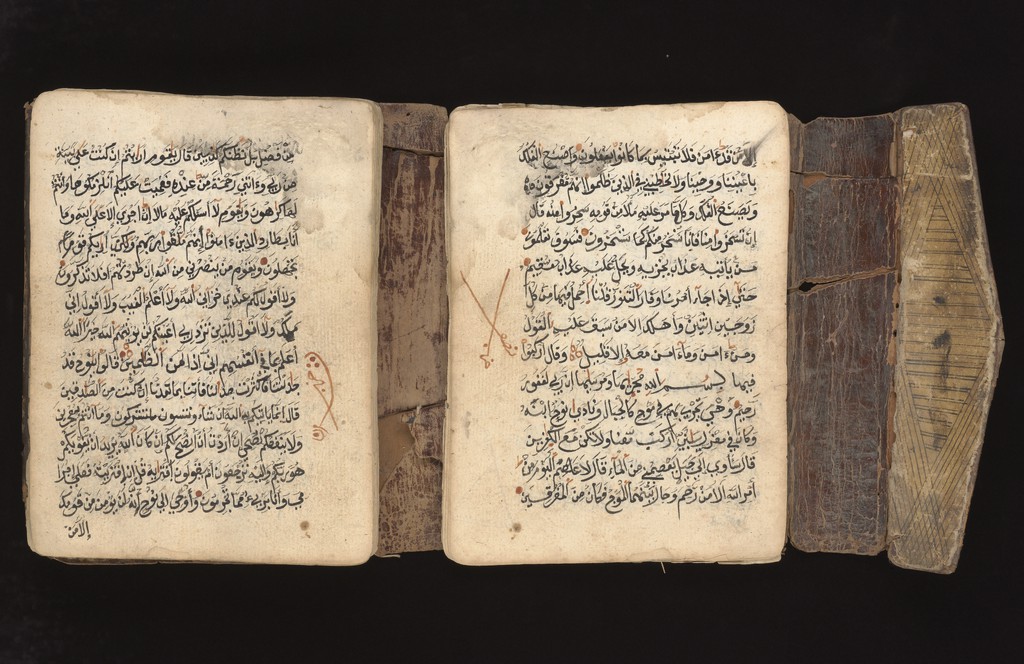 من فضل بل نظنكم كذبين قال يقوم ارايتم ان كنت على بينة
من ربي وءاتني رحمة من عنده فعميت عليكم انلزمكموها وانتم
لها كرهون ويقوم لا اسئلكم عليه مالا ان اجري الا على الله وما
انا بطارد الذين ءامنوا انهم ملقوا ربهم ولكني اريكم قوما
تجهلون ويقوم من ينصرني من الله ان طردتهم افلا تذكرون
ولا اقول لكم عندي خزاين الله ولا اعلم الغيب ولا اقول اني
ملك ولا اقول للذين تزدري اعينكم لن يوتيهم الله خيرا الله
اعلم بما في انفسهم اني اذا لمن الظلمين قالوا ينوح قد
جدلتنا فاكثرت جدلنا فاتنا بما تعدنا ان كنت من الصدقين
قال انما ياتيكم به الله ان شاء وتنسون ما تشركون وما انتم بمعجزين
ولا ينفعكم نصحي ان اردت ان انصح لكم ان كان الله يريد ان يغويكم
هو ربكم واليه ترجعون ام يقولون افتريه قل ان افتريته فعلي اجرا
مي وانا بريء مما تجرمون واوحي الى نوح انه لن يومن من قومك
الا من
الا من قد ءامن فلا تبتئس بما كانوا يفعلون واصنع الفلك
باعيننا ووحينا ولا تخطبني في الذين ظلموا انهم مغرقون
ويصنع الفلك وكلما مر عليه ملا من قومه سخروا منه قال
ان تسخروا منا فانا نسخر منكم كما تسخرون فسوف تعلمون
من ياتيه عذاب يخزيه ويحل عليه عذاب مقيم
حتى اذا جاء امرنا وفار التنور قلنا احمل فيها من كل
زوجين اثنين واهلك الا من سبق عليه القول
ومن ءامن وما ءامن معه الا قليل وقال اركبوا
فيها بسم الله مجريها ومرسيها ان ربي لغفور
رحيم وهي تجري بهم في موج كالجبال ونادى نوح ابنه
وكان في معزل يبني اركب معنا ولا تكن مع الكفرين
قال ساوي الى جبل يعصمني من الماء قال لا عاصم اليوم من
امر الله الا من رحم وحال بينهما الموج فكان من المغرقين